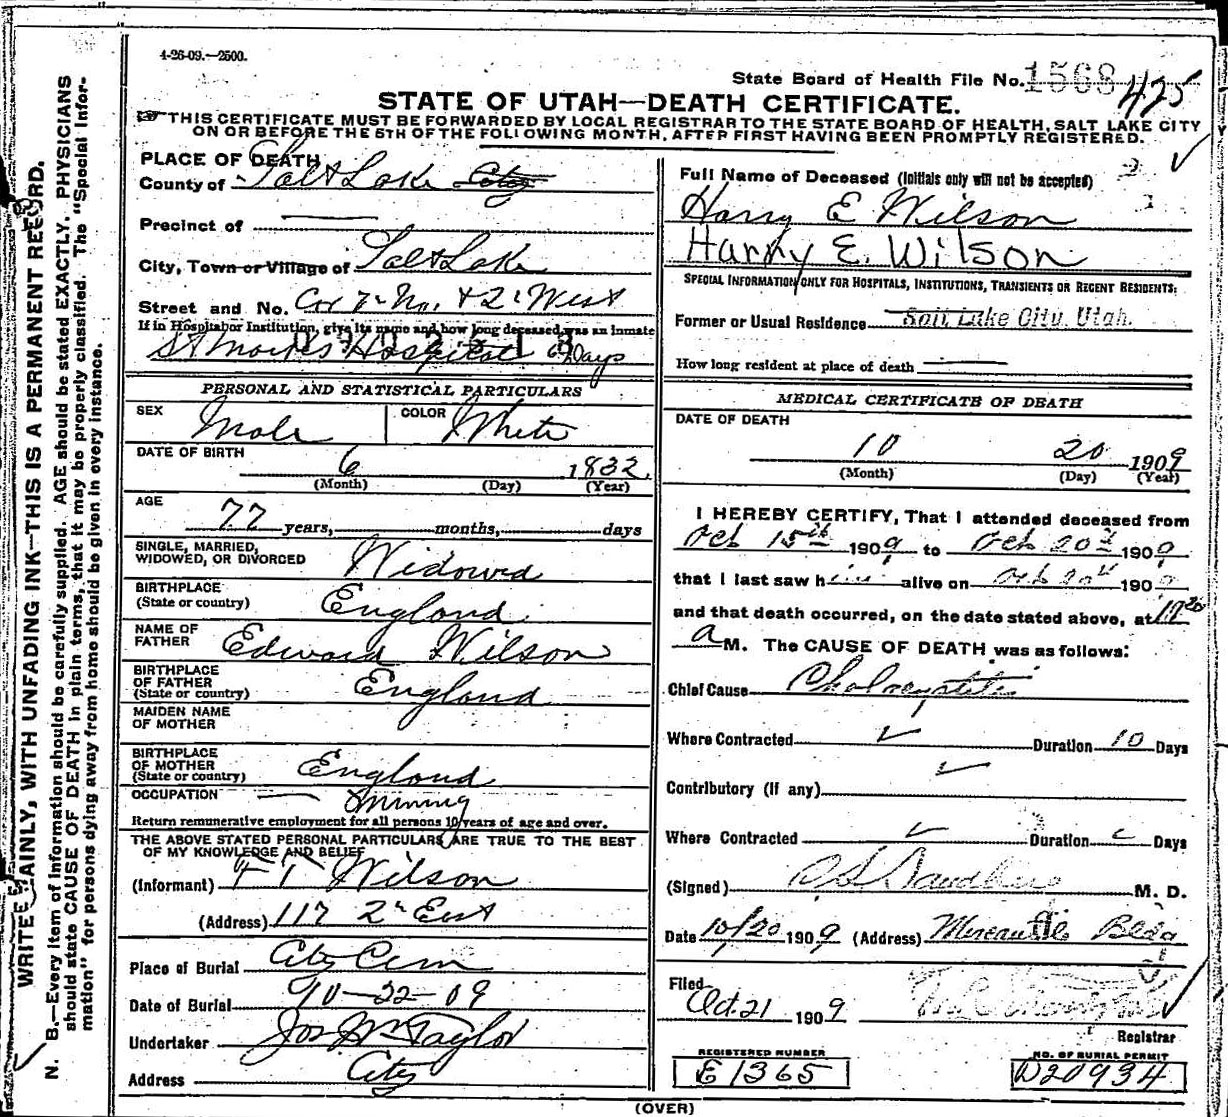 4-26-09.—2500.
State Board of Health File No. 1568 425
STATE OF UTAH—DEATH CERTIFICATE.
THIS CERTIFICATE MUST BE FORWARDED BY LOCAL REGISTRAR TO THE STATE BOARD OF HEALTH, SALT LAKE CITY
ON OR BEFORE THE 5TH OF THE FOLLOWING MONTH, AFTER FIRST HAVING BEEN PROMPTLY REGISTERED.
WRITE PLAINLY, WITH UNFADING INK—THIS IS A PERMANENT RECORD.
N. B.—Every item of information should be carefully supplied. AGE should be stated EXACTLY. PHYSICIANS
should state CAUSE OF DEATH in plain terms, that it may be properly classified. The "Special Infor-
mation" for persons dying away from home should be given in every instance.
PLACE OF DEATH
County of Salt Lake City
Precinct of
City, Town or Village of Salt Lake
Street and No. Cor 7" No. & 2" West
If in Hospital or Institution, give its name and how long deceased was an inmate
St Marks Hospital 6 Days
PERSONAL AND STATISTICAL PARTICULARS
SEX Male COLOR White
DATE OF BIRTH 6 1832
(Month) (Day) (Year)
AGE
77 years, months, days
SINGLE, MARRIED,
WIDOWED, OR DIVORCED Widowed
BIRTHPLACE
(State or country) England
NAME OF
FATHER Edward Wilson
BIRTHPLACE
OF FATHER
(State or country) England
MAIDEN NAME
OF MOTHER
BIRTHPLACE
OF MOTHER
(State or country) England
OCCUPATION Mining
Return remunerative employment for all persons 10 years of age and over.
THE ABOVE STATED PERSONAL PARTICULARS ARE TRUE TO THE BEST
OF MY KNOWLEDGE AND BELIEF
(Informant) F T Wilson
(Address) 117 2" East
Place of Burial City Cem
Date of Burial 10-22-09
Undertaker Jos Wm Taylor
Address City
Full Name of Deceased (Initials only will not be accepted)
Harry E Wilson
Harry E. Wilson
SPECIAL INFORMATION ONLY FOR HOSPITALS, INSTITUTIONS, TRANSIENTS OR RECENT RESIDENTS:
Former or Usual Residence Salt Lake City, Utah.
How long resident at place of death
MEDICAL CERTIFICATE OF DEATH
DATE OF DEATH
10 20 1909
(Month) (Day) (Year)
I HEREBY CERTIFY, That I attended deceased from
Oct 15th 1909 to Oct 20th 1909
that I last saw him alive on Oct 20th 1909
and that death occurred, on the date stated above, at
a M. The CAUSE OF DEATH was as follows:
Chief Cause Cholecystitis
Where Contracted Duration 10 Days
Contributory (if any)
Where Contracted Duration Days
(Signed) M. D.
Date 10/20 1909 (Address) Mercantile Bldg
Filed
Oct. 21 1909
Registrar
REGISTERED NUMBER
E 1365
NO. OF BURIAL PERMIT
D20934
(OVER)